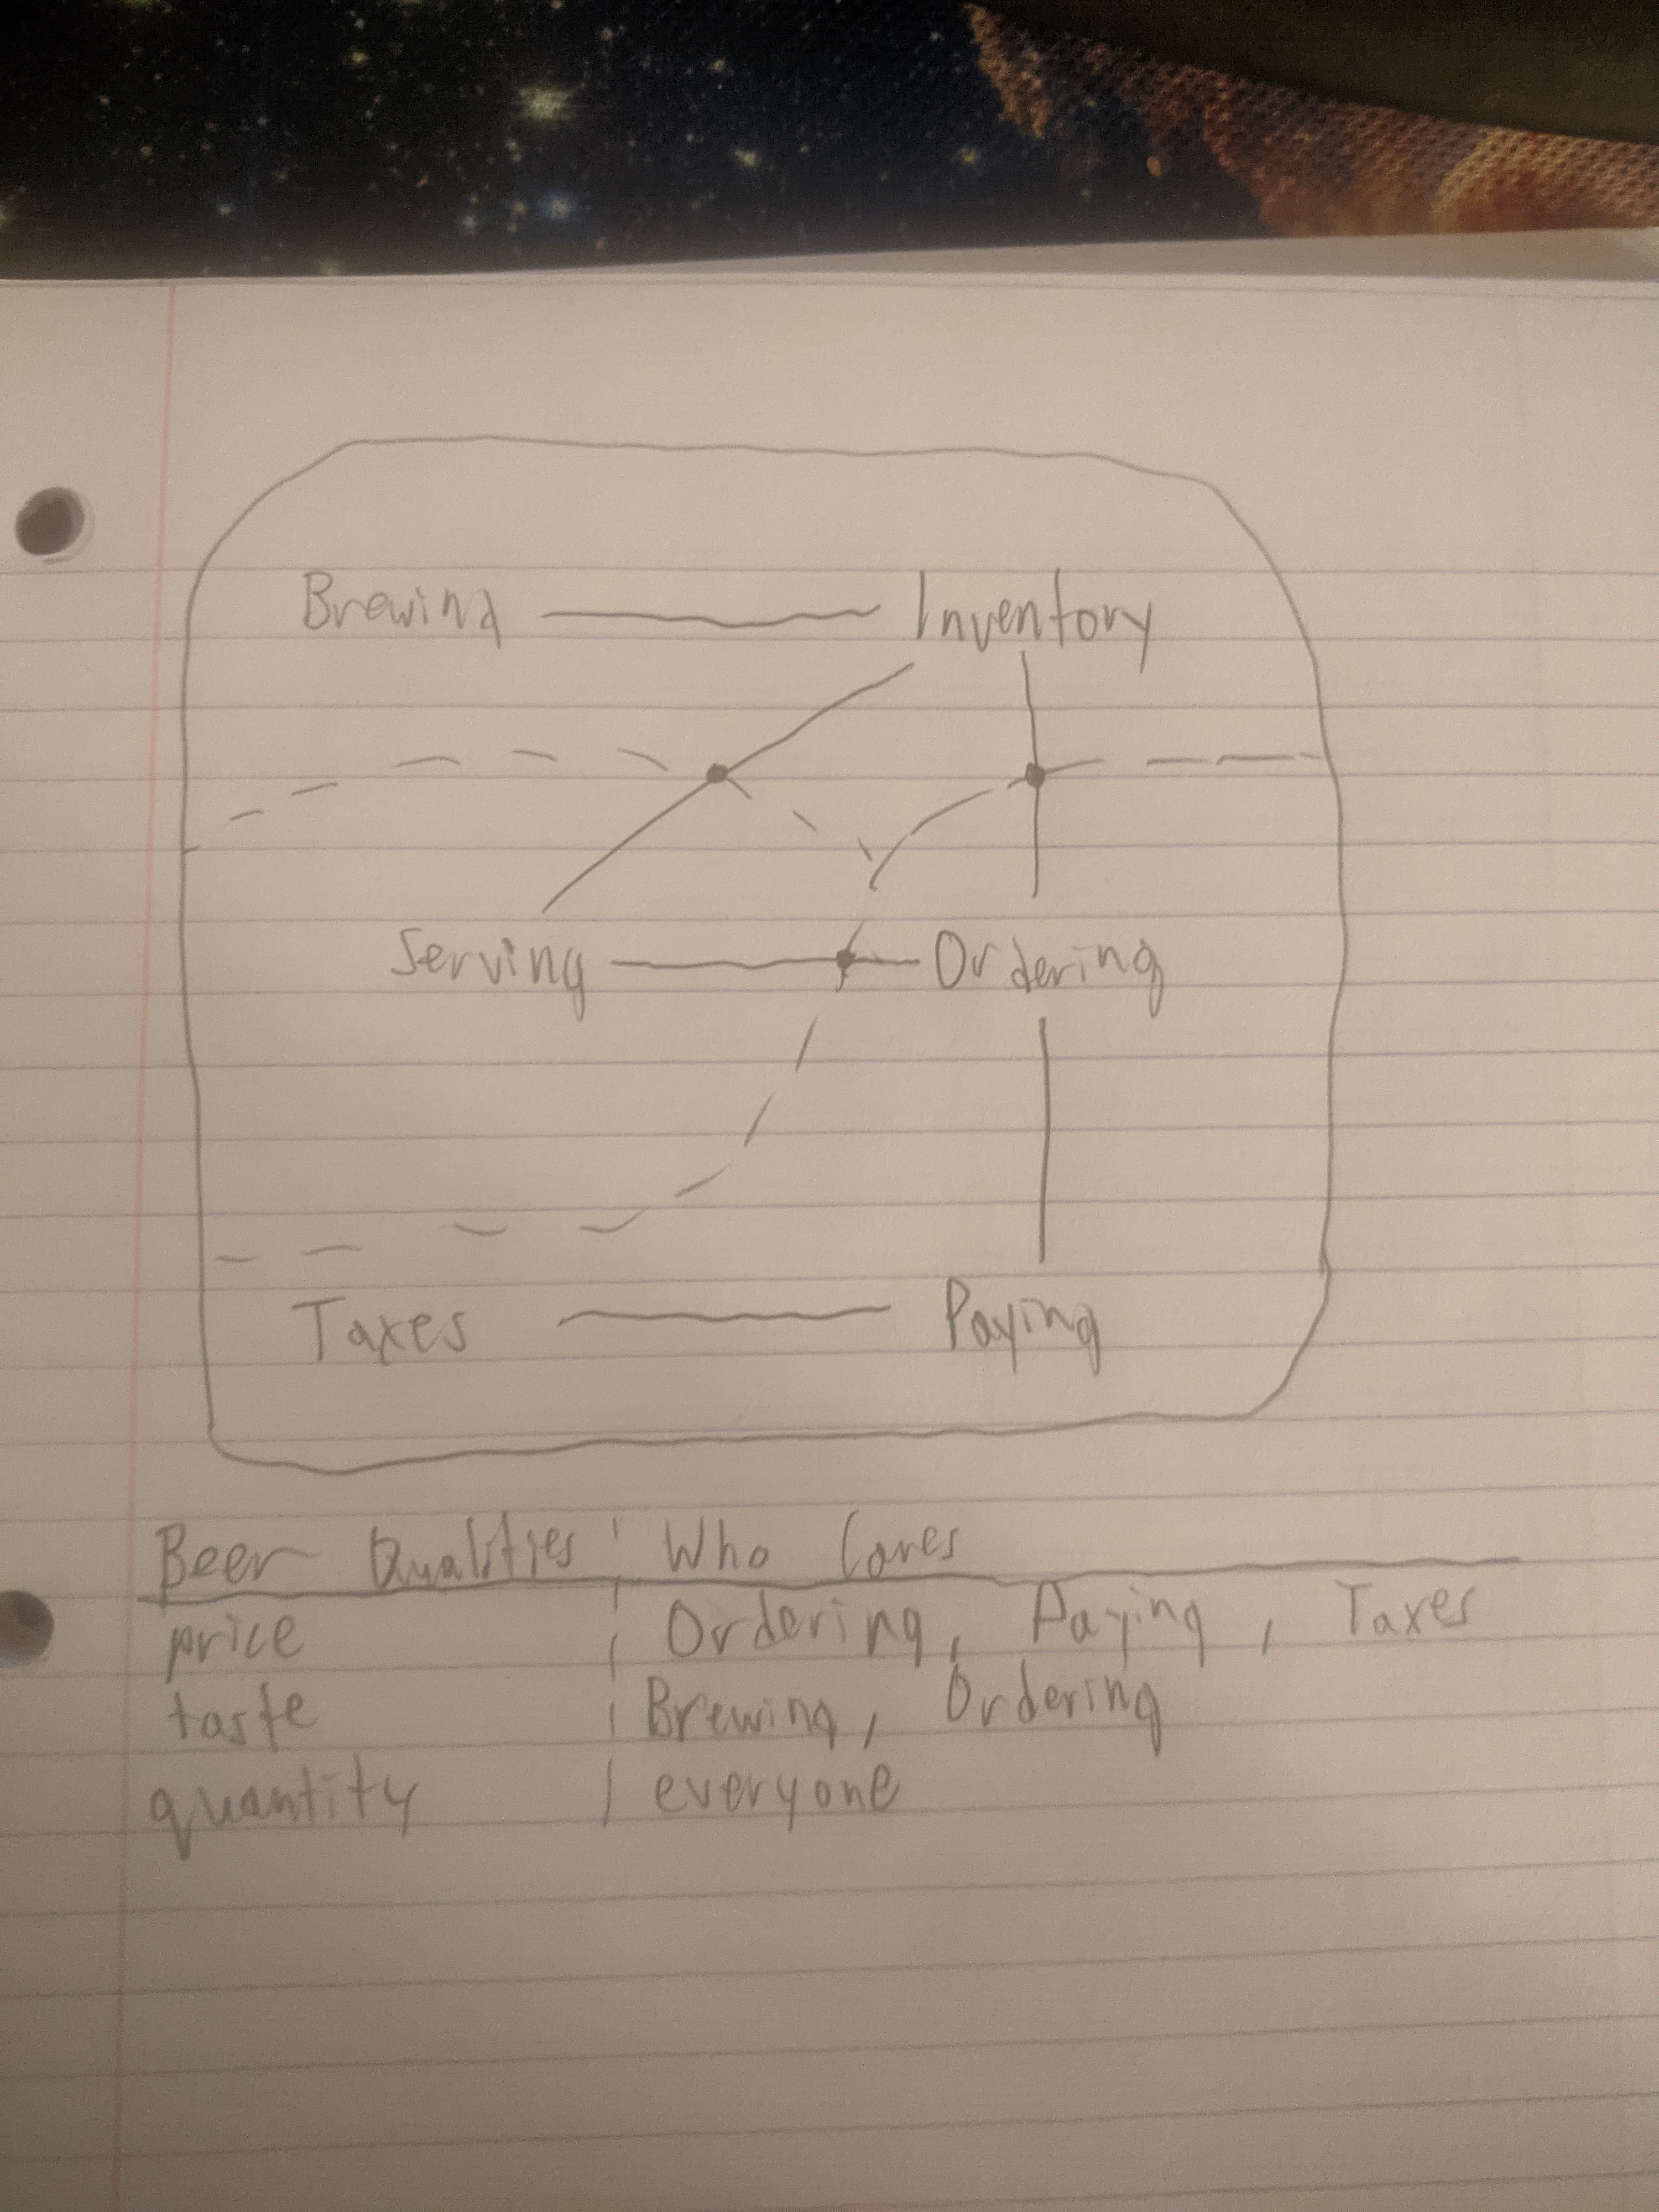 Brewing Inventory
Serving Ordering
Taxes Paying
Beer Qualities Who Cares
price Ordering, Paying, Taxes
taste Brewing, Ordering
quantity everyone